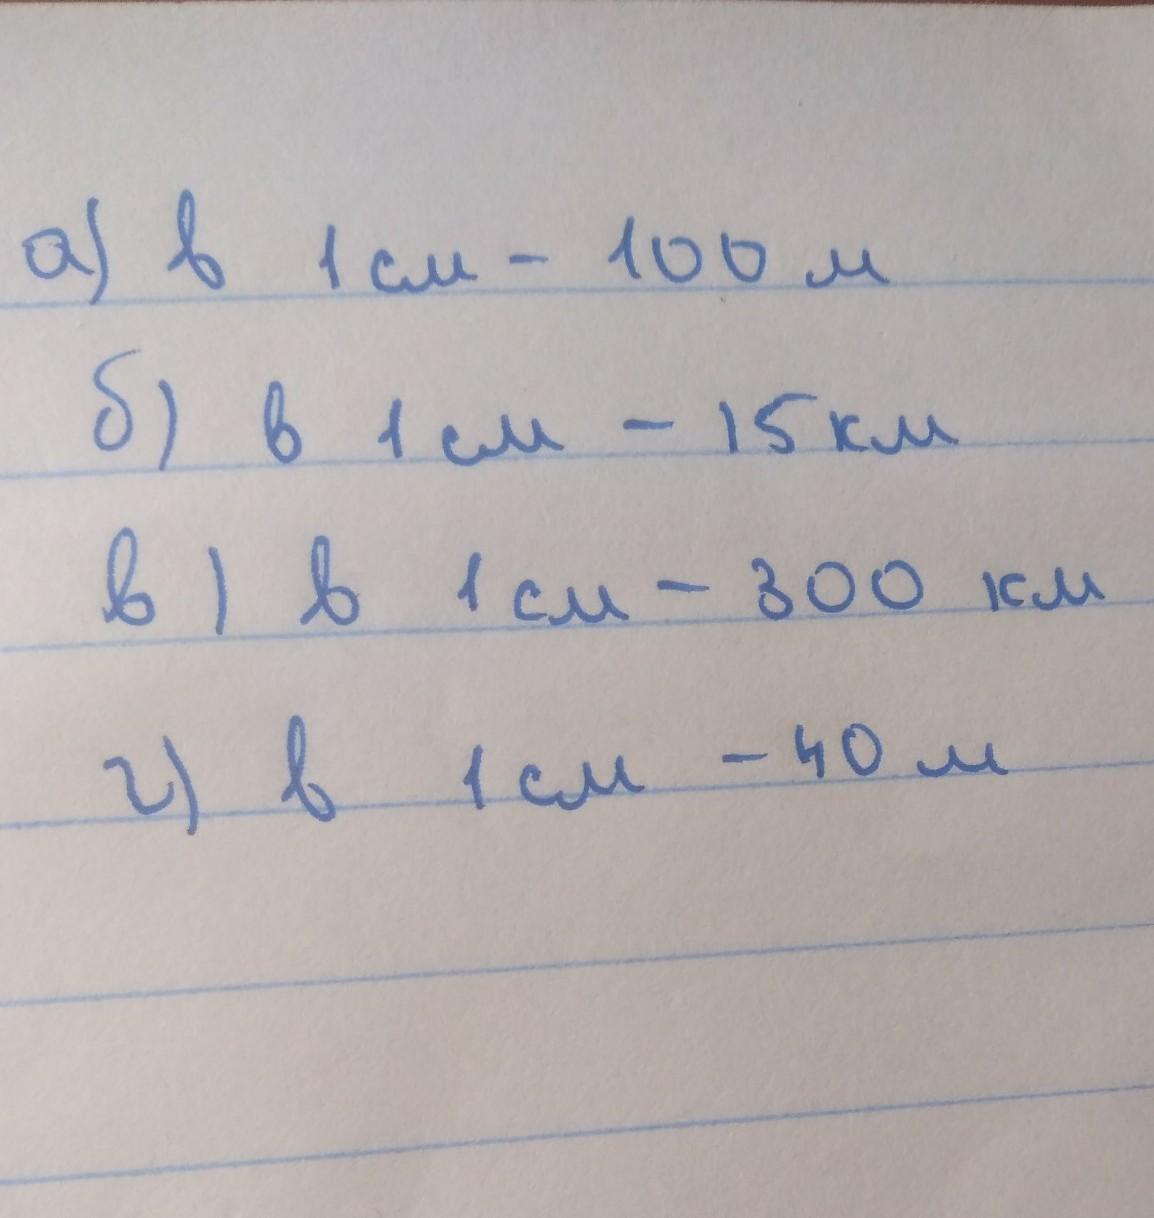 а) в 1 см - 100 м
б) в 1 см - 15 км
в) в 1 см - 300 км
г) в 1 см - 40 м